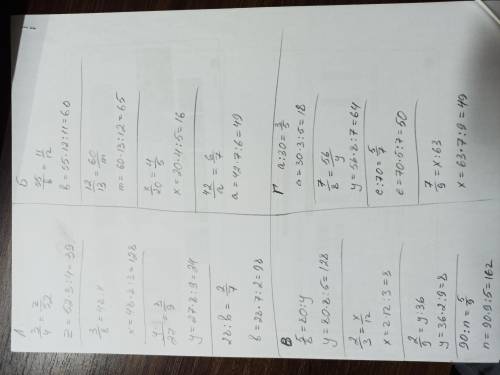 А
3/4 = z/52
z = 52·3:4 = 39
3/8 = 48:x
x = 48·8:3 = 128
y/27 = 8/9
y = 27·8:9 = 24
28:b = 2/7
b = 28·7:2 = 98
Б
55/b = 11/12
b = 55·12:11 = 60
12/13 = 60/m
m = 60·13:12 = 65
x/20 = 4/5
x = 20·4:5 = 16
42/a = 6/7
a = 42·7:6 = 49
В
5/8 = 80:y
y = 80·8:5 = 128
2/3 = x/12
x = 2·12:3 = 8
2/9 = y:36
y = 36·2:9 = 8
90:n = 5/9
n = 90·9:5 = 162
Г
a:30 = 3/5
a = 30·3:5 = 18
7/8 = 56/y
y = 56·8:7 = 64
c:70 = 5/7
c = 70·5:7 = 50
7/9 = x:63
x = 63·7:9 = 49